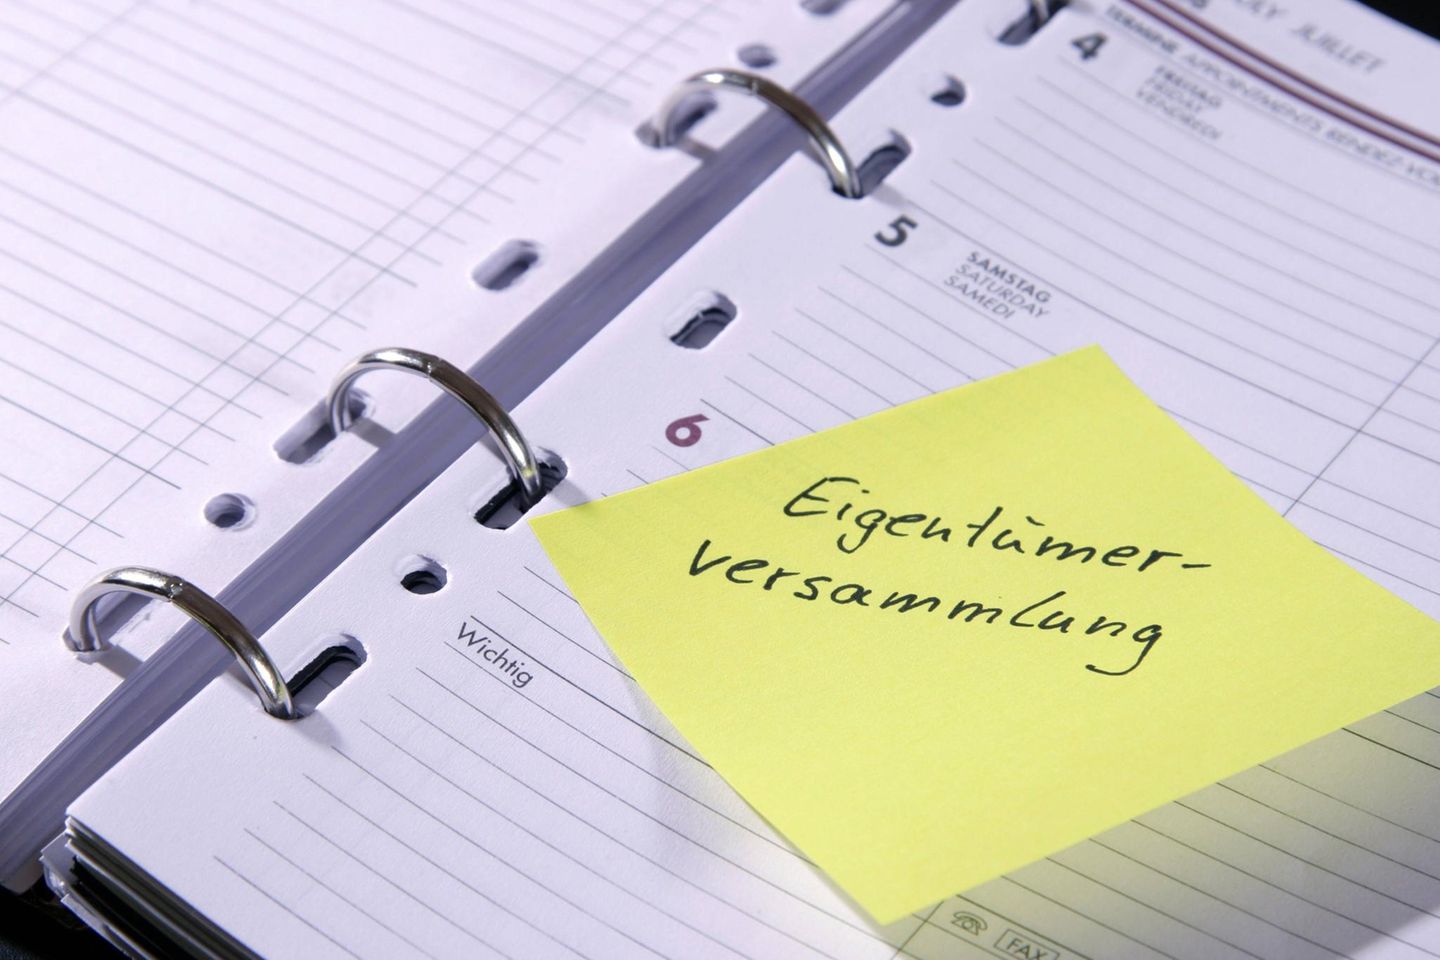 JULY JUILLET
TERMINE APPOINTMENTS RENDEZ-VOUS
4
FREITAG
FRIDAY
VENDREDI
5
SAMSTAG
SATURDAY
SAMEDI
6
Eigentümer-
versammlung
Wichtig
FAX